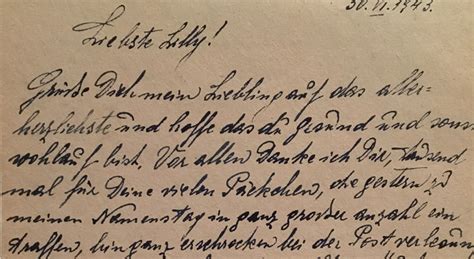 30. VI. 1943.
Liebste Lilly!
Grüße Dich mein Liebling auf das aller-
herzlichste und hoffe das du gesund und sonst
wohlauf bist. Vor allen Danke ich Dir, tausend
mal für Deine vielen Päckchen, die gestern zu
meinen Namenstag in ganz großer anzahl ein
traffen, bin ganz erschrocken bei der Post